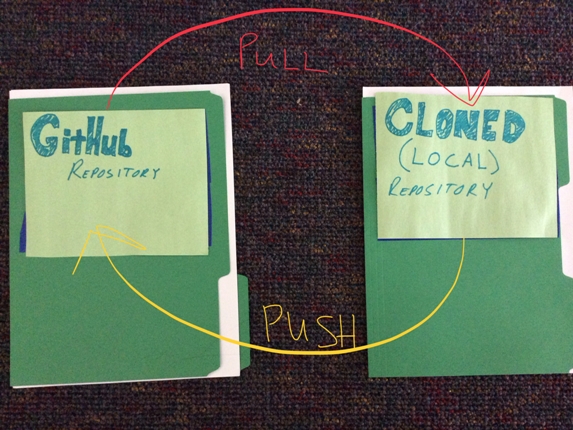 PULL
GitHub
REPOSITORY
CLONED
(LOCAL)
REPOSITORY
PUSH